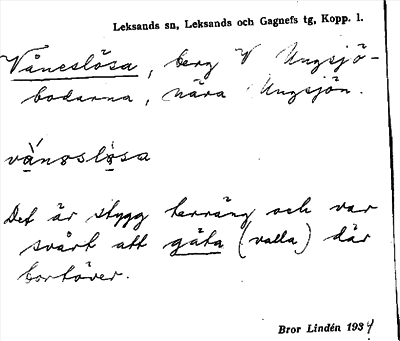 Leksands sn, Leksands och Gagnefs tg, Kopp. l.
Våneslösa, berg V Ungsjö-
bodarna, nära Ungsjön.
vånəslösa
Det är stygg terräng och var
svårt att gäta (valla) där
bortöver.
Bror Lindén 1934